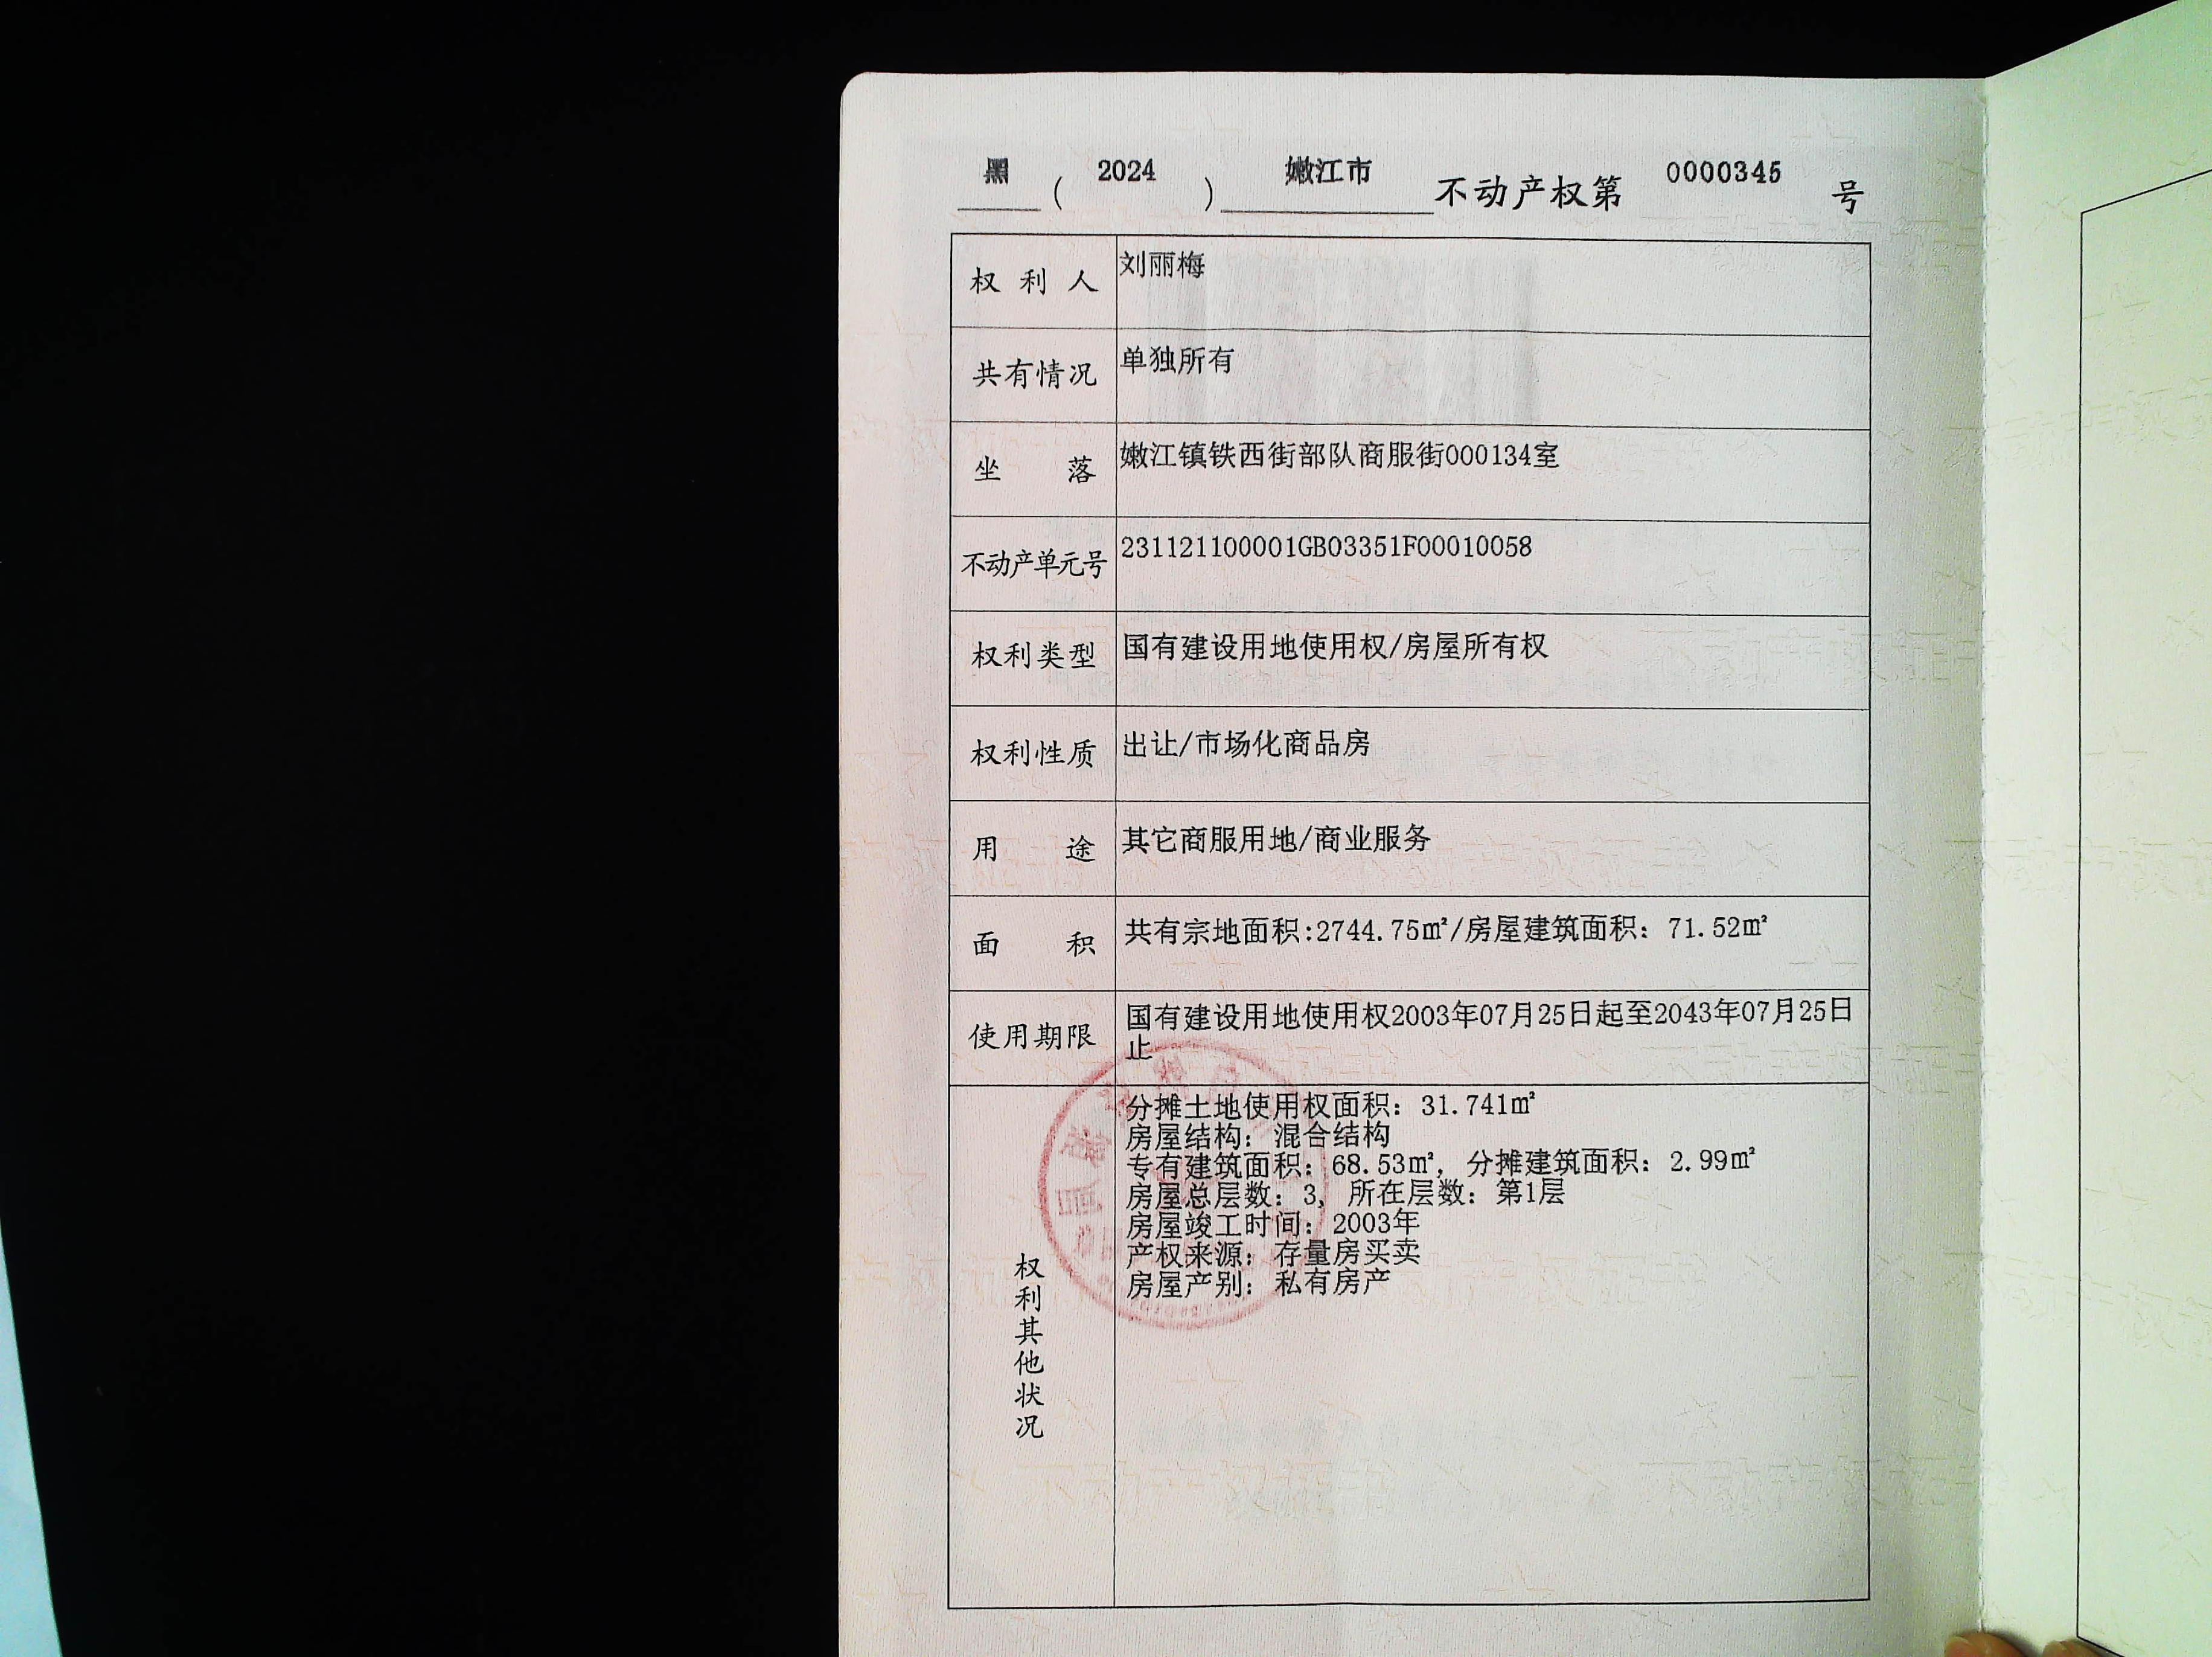 黑 ( 2024 ) 嫩江市 不动产权第 0000345 号
权利人 刘丽梅
共有情况 单独所有
坐落 嫩江镇铁西街部队商服街000134室
不动产单元号 231121100001GB03351F00010058
权利类型 国有建设用地使用权/房屋所有权
权利性质 出让/市场化商品房
用途 其它商服用地/商业服务
面积 共有宗地面积:2744.75㎡/房屋建筑面积: 71.52㎡
使用期限 国有建设用地使用权2003年07月25日起至2043年07月25日
止
权利其他状况
分摊土地使用权面积: 31.741㎡
房屋结构: 混合结构
专有建筑面积: 68.53㎡, 分摊建筑面积: 2.99㎡
房屋总层数: 3, 所在层数: 第1层
房屋竣工时间: 2003年
产权来源: 存量房买卖
房屋产别: 私有房产